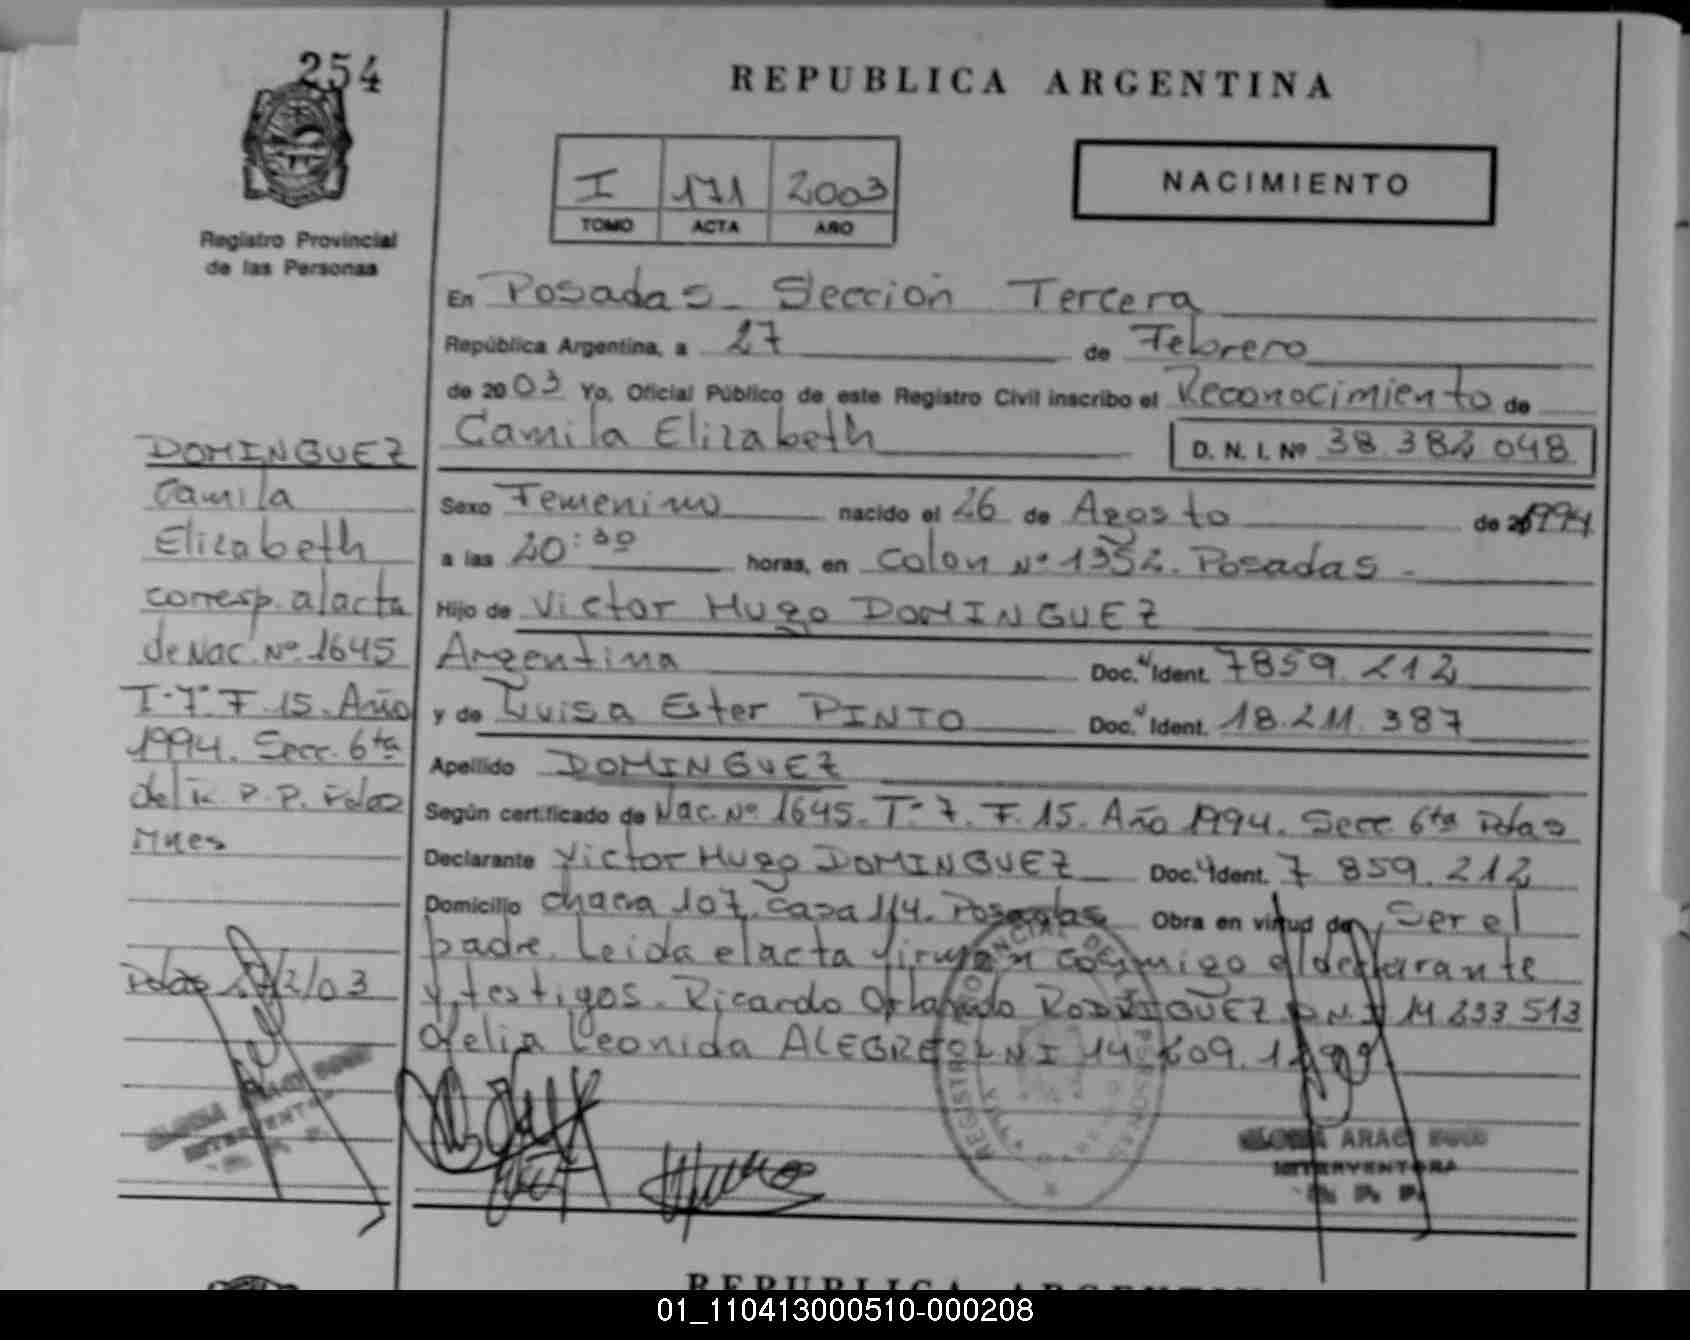 254
REPUBLICA ARGENTINA
I 171 2003
TOMO ACTA AÑO
NACIMIENTO
Registro Provincial
de las Personas
En Posadas - Sección Tercera
República Argentina, a 27 de Febrero
de 2003 Yo, Oficial Público de este Registro Civil inscribo el Reconocimiento de
Camila Elizabeth D. N. I. Nº 38.382.048
Sexo Femenino nacido el 26 de Agosto de 1994
a las 20:30 horas, en Colon Nº 1352. Posadas -
Hijo de Victor Hugo DOMINGUEZ
Argentina Doc. Ident. 7859.212
y de Luisa Ester PINTO Doc. Ident. 18.211.387
Apellido DOMINGUEZ
Según certificado de Nac. Nº 1645. Tº 7. F. 15. Año 1994. Secc 6ta Pdas
Declarante Victor Hugo DOMINGUEZ Doc. Ident. 7 859.212
Domicilio chacra 107. Casa 114. Posadas Obra en virtud de Ser el
padre. Leida el acta firman conmigo el declarante
y testigos. Ricardo Orlando RODRIGUEZ D.N.I 14 233 513
Ofelia Leonida ALEGRE D.N.I 14.609.
DOMINGUEZ
Camila
Elizabeth
corresp. al acta
de Nac. Nº 1645
T. 7º F. 15. Año
1994. Secc. 6ta
del R. P. P. Pdas
Mnes
Pdas 27/2/03
INTERVENTORA
R. P. P.
REPUBLICA ARGENTINA
01_110413000510-000208